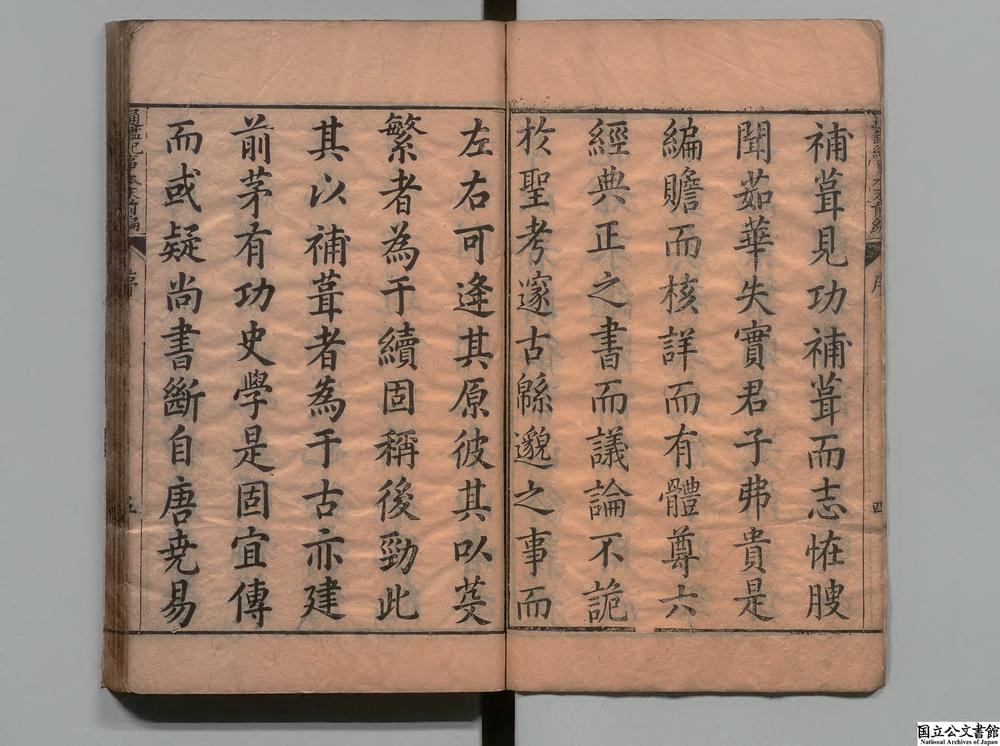 補葺見功補葺而志恠膄
聞茹華失實君子弗貴是
編贍而核詳而有體尊六
經典正之書而議論不詭
於聖考邃古緜邈之事而
四
左右可逢其原彼其以芟
繁者為于續固稱後勁此
其以補葺者為于古亦建
前茅有功史學是固宜傳
而或疑尚書斷自唐堯易
通鑑紀事本末前編
序
五
国立公文書館
National Archives of Japan